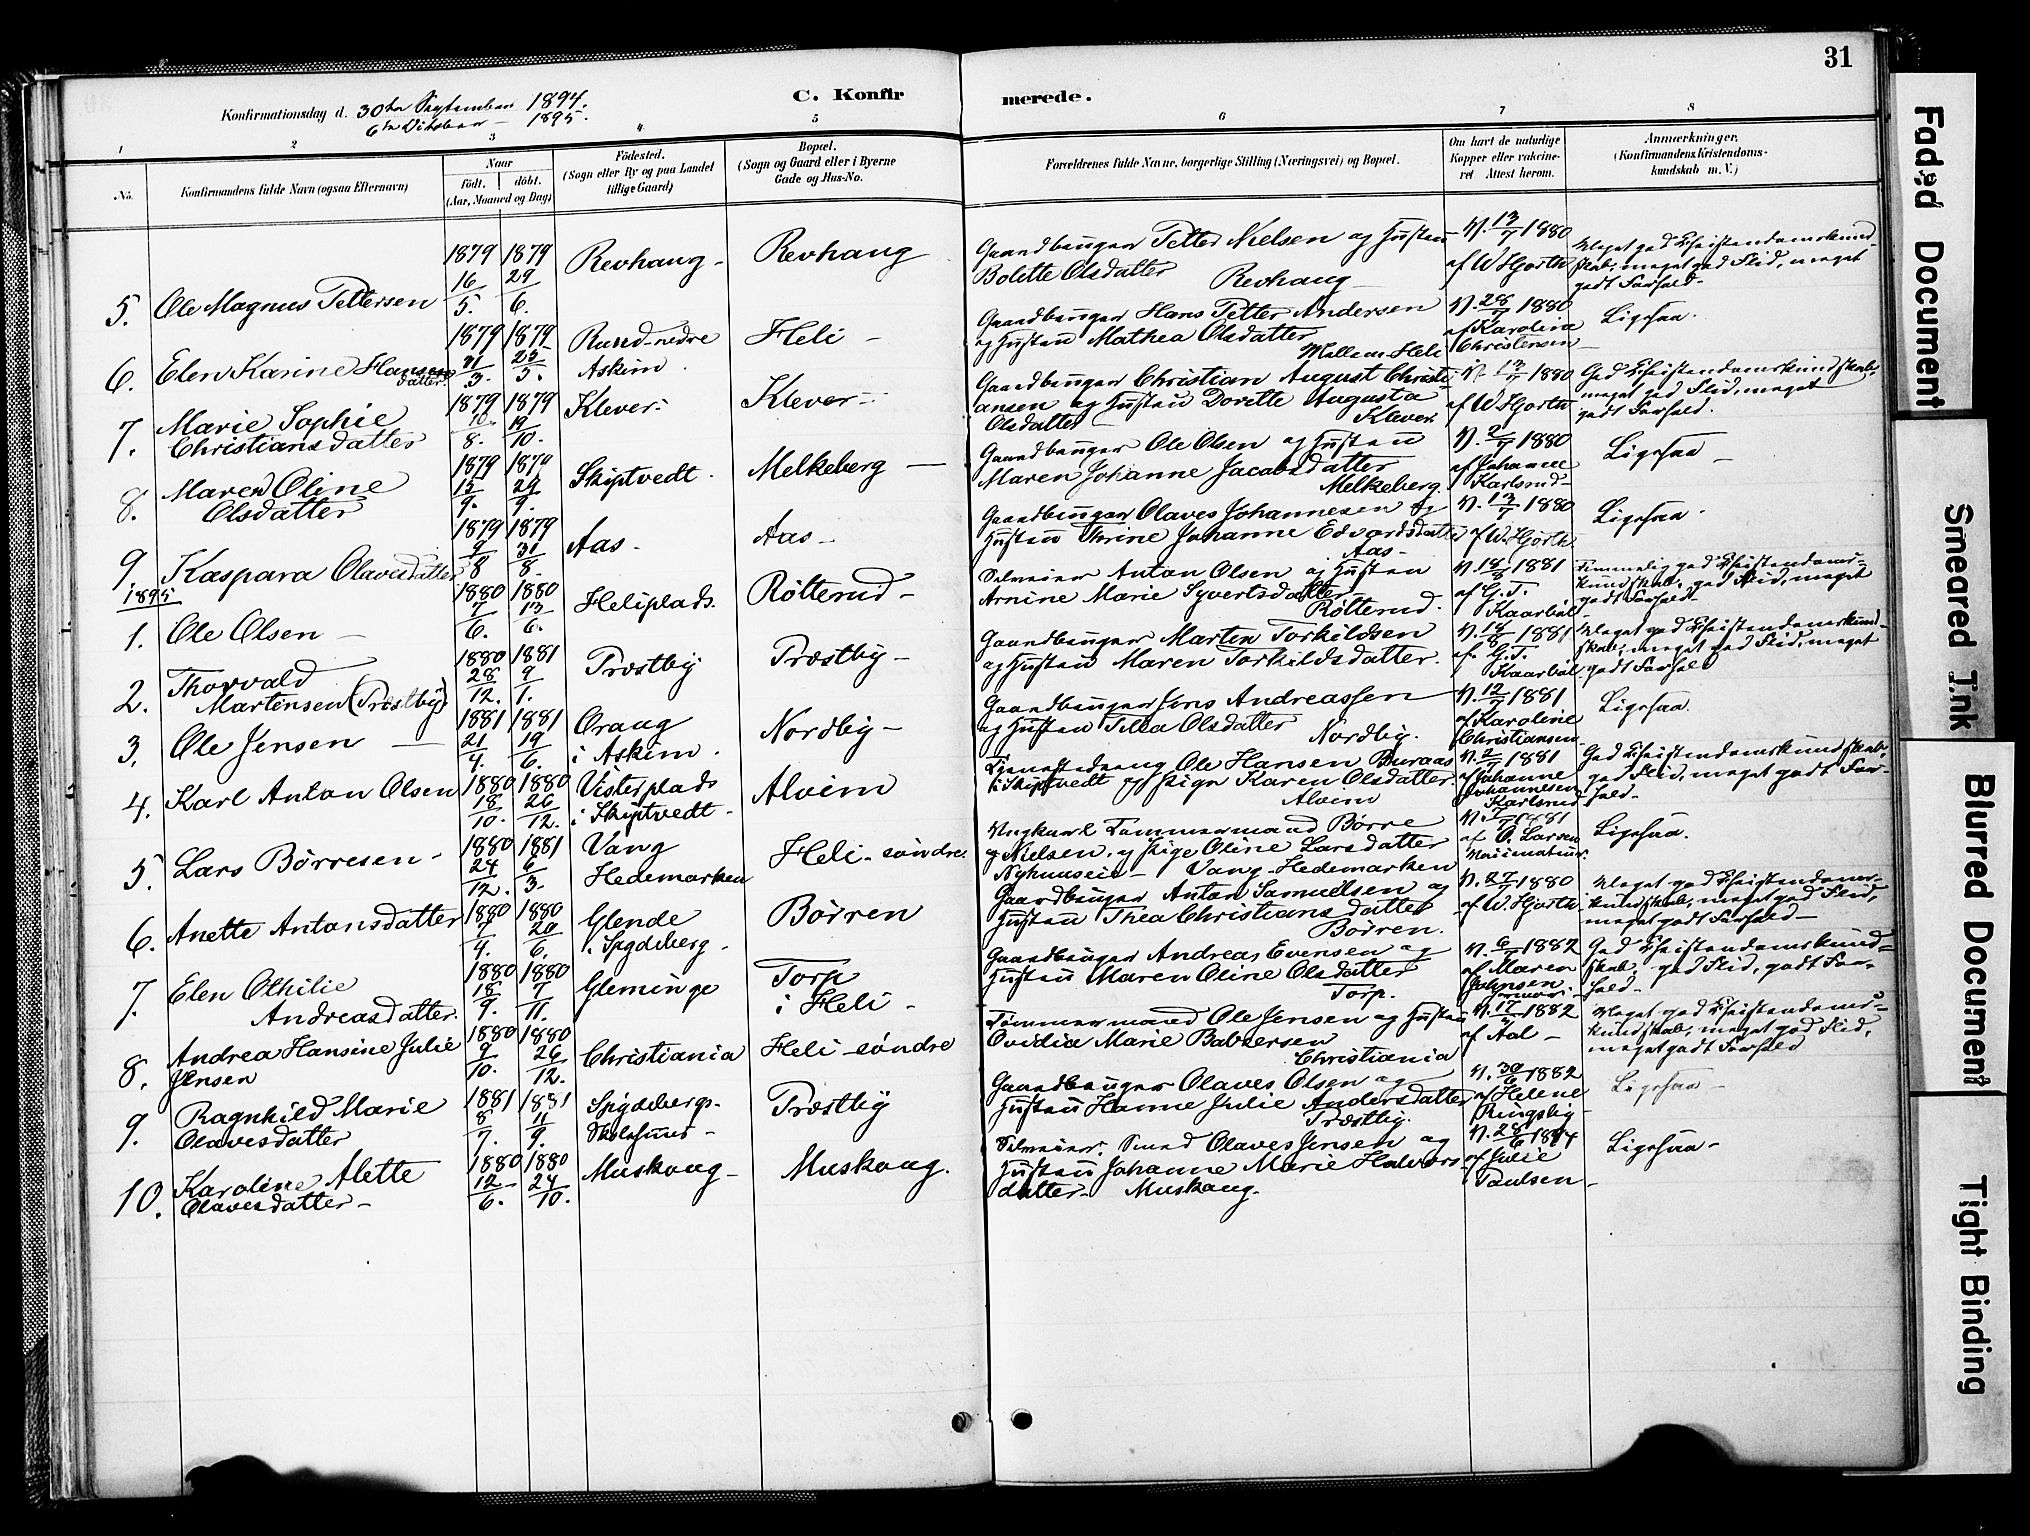 31
Konfirmationsdag d. 30te September 1894.
6te Oktober – 1895.
C. Konfirmerede.
1 2 3 4 5 6 7 8
No.
Konfirmandens fulde Navn (ogsaa Efternavn)
Naar
født. døbt.
(Aar, Maaned og Dag)
Fødested.
(Sogn eller By og paa Landet
tillige Gaard)
Bopæl.
(Sogn og Gaard eller i Byerne
Gade og Hus-No.
Forældrenes fulde Navne, borgerlige Stilling (Næringsvei) og Bopæl.
Om havt de naturlige
Kopper eller vakcine-
ret Attest herom.
Anmærkninger,
(Konfirmandens Kristendoms-
kundskab m. V.)
5. Ole Magnus Pettersen
1879 16/5. 1879 29/6.
Revhaug –
Revhaug
Gaardbruger Petter Nielsen og Hustru
Bolette Olsdatter
Revhaug –
V. 13/7 1880
af W Hjorth
Meget god Christendomskund-
skab, meget god Flid, meget
godt Forhold –
6. Elen Karine Hansen
datter.
1879 21/3. 1879 25/5.
Rud nedre
Askim.
Heli –
Gaardbruger Hans Petter Andersen
og Hustru Mathea Olsdatter
Mellem Heli
V. 28/7 1880
af Karoline
Christensen –
Ligesaa.
7. Marie Sophie
Christiansdatter
1879 10/8. 1879 19/10.
Klever –
Klever –
Gaardbruger Christian August Christi-
ansen og Hustru Dorette Augusta
Olsdatter – Klever.
V. 13/7 1880
af W Hjorth
God Christendomskundskab,
meget god Flid, meget
godt Forhold.
8. Maren Oline
Olsdatter
1879 15/9. 1879 29/9.
Skiptvedt.
Melkeberg –
Gaardbruger Ole Olsen og Hustru
Maren Johanne Jacobsdatter
Melkeberg.
V. 2/7 1880
af Johanne
Karlsrud –
Ligesaa –
9. Kaspara Olavesdatter
1879 9/8 1879 31/8.
Aas –
Aas –
Gaardbruger Olaves Johannesen og
Hustru Thrine Johanne Edvardsdatter
Aas –
V. 13/7 1880
af W. Hjorth.
Ligesaa.
1895
1. Ole Olsen –
1880 7/6. 1880 13/6.
Heliplads.
Røtterud –
Selveier Anton Olsen og Hustru
Arnine Marie Syvertsdatter
Røtterud.
V. 18/8 1881
af G. T.
Kaarbøl
Temmelig god Christendoms-
kundskab, god Flid, meget
godt Forhold –
2. Thorvald
Martinsen (Præstby)
1880 28/12. 1881 9/1.
Prostby
Præstby –
Gaardbruger Martin Torkildsen
og Hustru Maren Torkildsdatter.
V. 18/8 1881
af G. T.
Kaarbøl
Meget god Christendomskund-
skab, meget god Flid, meget
godt Forhold
3. Ole Jensen –
1881 21/4. 1881 19/6.
Oraug
i Askim.
Nordby –
Gaardbruger Jens Andreassen
og Hustru Tilla Olsdatter
Nordby.
V. 12/7 1881
af Karoline
Christiansen
Ligesaa.
4. Karl Anton Olsen
1880 18/10. 1880 26/12.
Visterplads
i Skiptvedt –
Alvim
Tjenestedreng Ole Hansen Buraas
i Skiptvedt og Pige Karen Olsdatter
Alvim
V. 2/7 1881
af Johanne
Johannesen
Karlsrud
God Christendomskundskab,
god Flid, meget godt For-
hold –
5. Lars Børresen –
1880 24/12. 1881 6/3.
Vang
Hedemarken
Heli – søndre.
Ungkarl Tømmermand Børre
Nielsen og Pige Oline Larsdatter
Vang – Hedemarken
af O. Larsen
Ligesaa.
6. Anette Antonsdatter
1880 7/4. 1880 20/6.
Glende
i Spydeberg –
Børren
Gaardbruger Anton Samuelsen og
Hustru Thea Christiansdatter
Børren.
V. 27/7 1880
af W. Hjorth
Meget god Christendoms-
kundskab, meget god Flid,
meget godt Forhold –
7. Elen Othilie
Andreasdatter.
1880 18/9. 1880 7/11.
Gleminge
Torp
i Heli –
Gaardbruger Andreas Evensen og
Hustru Maren Oline Olsdatter
Torp.
V. 6/7 1882
af Maren
Johnsen
God Christendomskund-
skab, god Flid, godt For-
hold –
8. Andrea Hansine Julie
Jensen
1880 9/10. 1880 26/12.
Christiania
Heli – søndre
Tømmermand Ole Jensen og Hustru
Ovidia Marie Baltersen
Christiania
1882
af Aal –
Meget god Christendoms-
kundskab, meget god Flid,
meget godt Forhold
9. Ragnhild Marie
Olavesdatter
1881 8/7. 1881 11/9.
Spydebergs-
Skolehuus –
Præstby
Gaardbruger Olaves Olsen og
Hustru Hanne Julie Andersdatter
Præstby.
V. 30/6 1882
af Helene
Ringsby –
Ligesaa –
10. Karoline Alette
Olavesdatter –
1880 12/6. 1880 24/10.
Muskoug –
Muskoug.
Selveier Smed Olaves Jensen og
Hustru Johanne Marie Halvors-
datter – Muskoug.
V. 28/6 1884
af Julie
Paulsen –
Ligesaa –
Faded Document
Smeared Ink
Blurred Document
Tight Binding